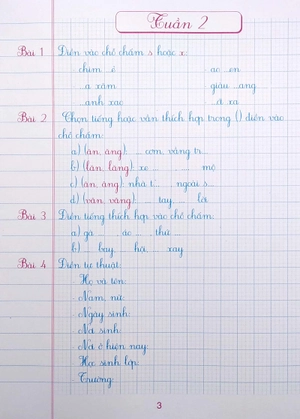 Tuần 2
Bài 1 Điền vào chỗ chấm s hoặc x:
chim ...ẻ ao ...en
...a xăm giàu ...ang
...anh xao đi ...a
Bài 2 Chọn tiếng hoặc vần thích hợp trong () điền vào
chỗ chấm:
a) (ăn, ăng): ... cơm, vầng tr...
b) (lăn, lăng): xe ... ... mộ
c) (ăn, ăng): nhà t... ngoài s...
d) (vân, vâng): ... tay ... lời
Bài 3 Điền tiếng thích hợp vào chỗ chấm:
a) gà ... áo ... thứ ...
b) ... bay hội ... xay ...
Bài 4 Điền tự thuật:
Họ và tên:
Nam, nữ:
Ngày sinh:
Nơi sinh:
Nơi ở hiện nay:
Học sinh lớp:
Trường:
3